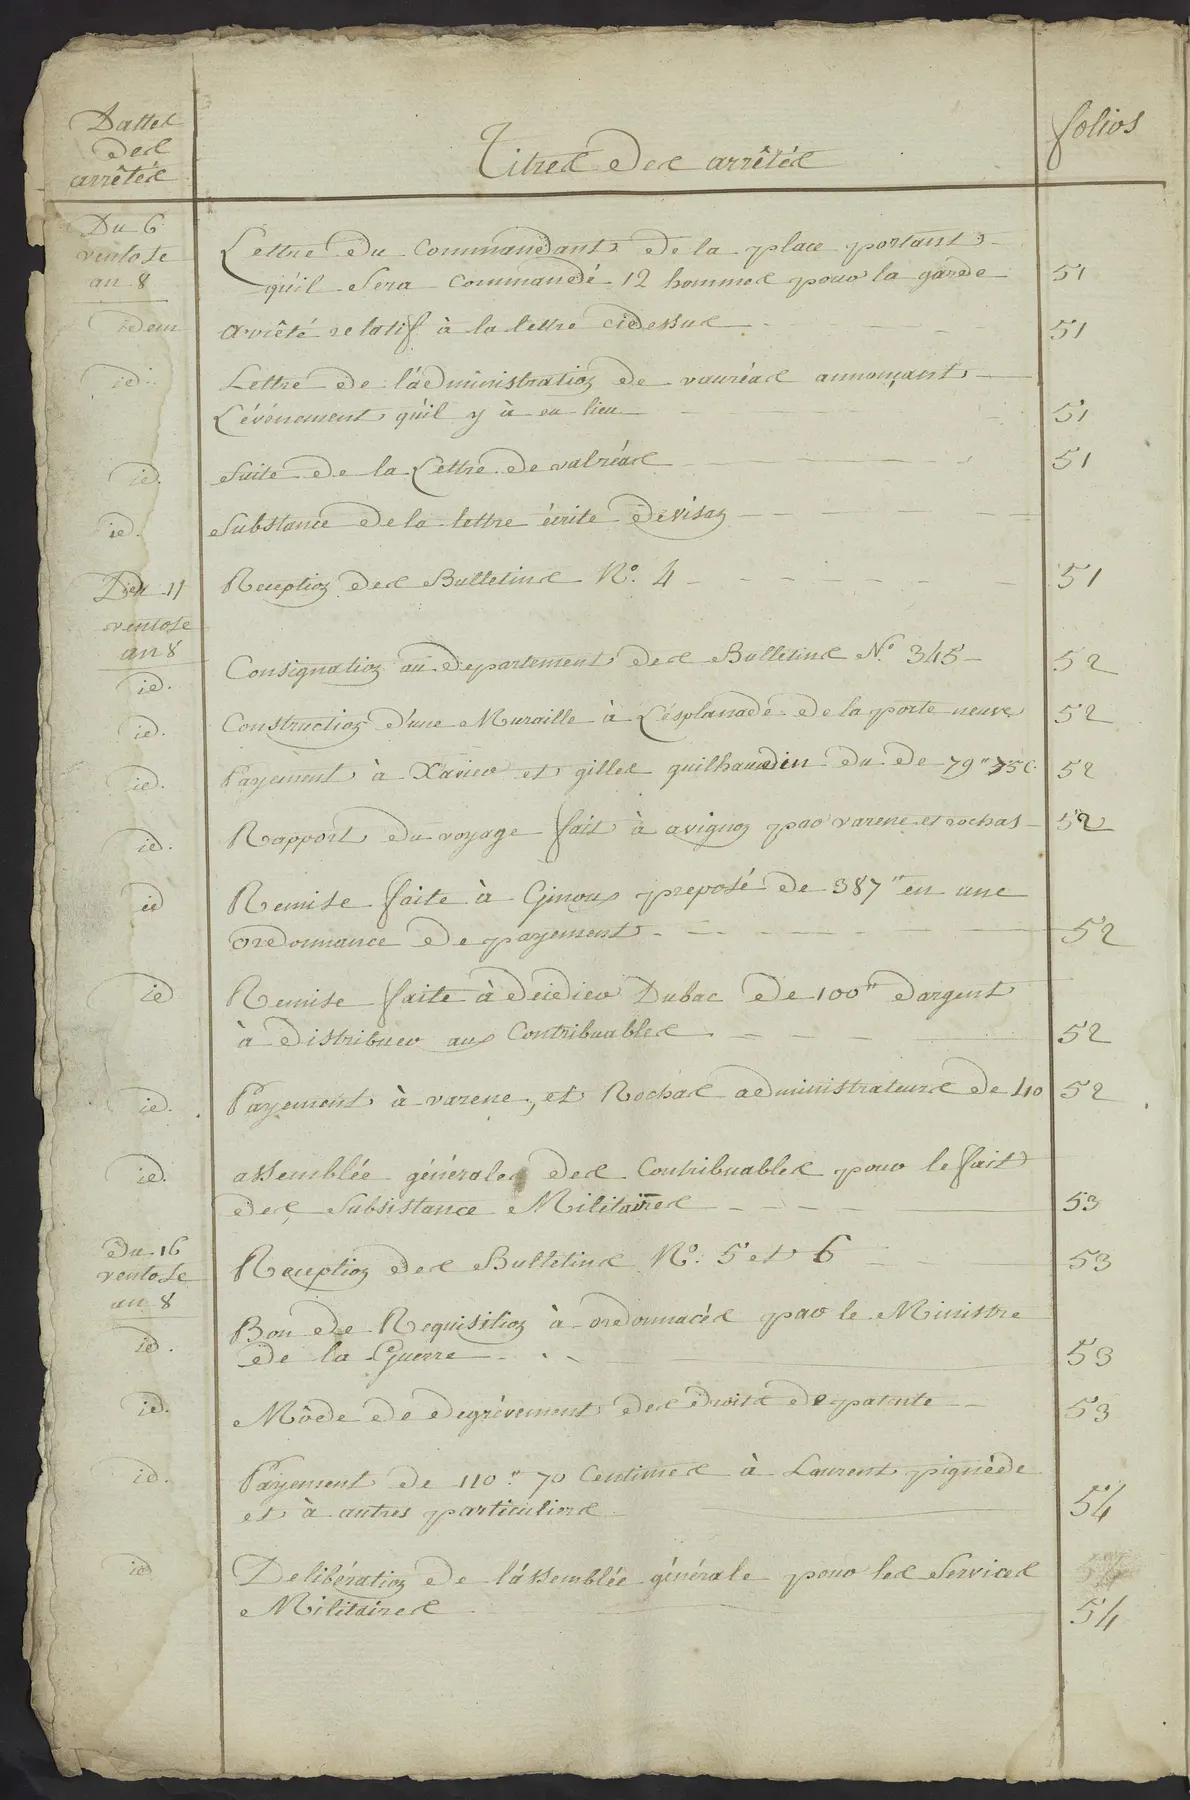 Dattes
des
arrêtés
Titres des arrêtés
folios
Du 6
ventose
an 8
Lettre du Commandant de la place portant
qu'il Sera Commandé 12 hommes pour la garde 51
idem arrêté relatif à la lettre cidessus 51
id. Lettre de l'administration de vauréas annonçant
L'événement qu'il y à eu lieu 51
id. Suite de la Lettre de valréas 51
id. Substance de la lettre écrite de visan
Du 11 Reception des Bulletins N.º 4 51
ventose
an 8
Consignation au departement des Bulletins N.º 345 52
id.
id. Construction d'une Muraille à L'ésplanade de la porte neuve 52
id. Payement à Xavier et gilles guilhaudin du de 79" 75 c. 52
id. Rapport du voyage fait à avignon par varene et rochas 52
id Remise faite à Ginoux preposé de 387" en une
ordonnance de payement 52
id Remise faite à Deidier Dubac de 100" d'argent
à distribuer aux Contribuables 52
id. Payement à varene, et Rochas administrateurs de 40 52
id. assemblée générale des Contribuables pour le fait
des Subsistance Militaires 53
du 16
ventose
an 8
Reception des Bulletins N.º 5 et 6 53
id. Bon de Requisition à ordonnacés par le Ministre
de la Guerre 53
id. Môde de degrèvement des droits de patente 53
id. Payement de 110" 70 Centimes à Laurent pignède
et à autres particuliers 54
id Delibération de l'assemblée générale pour les Services
Militaires 54